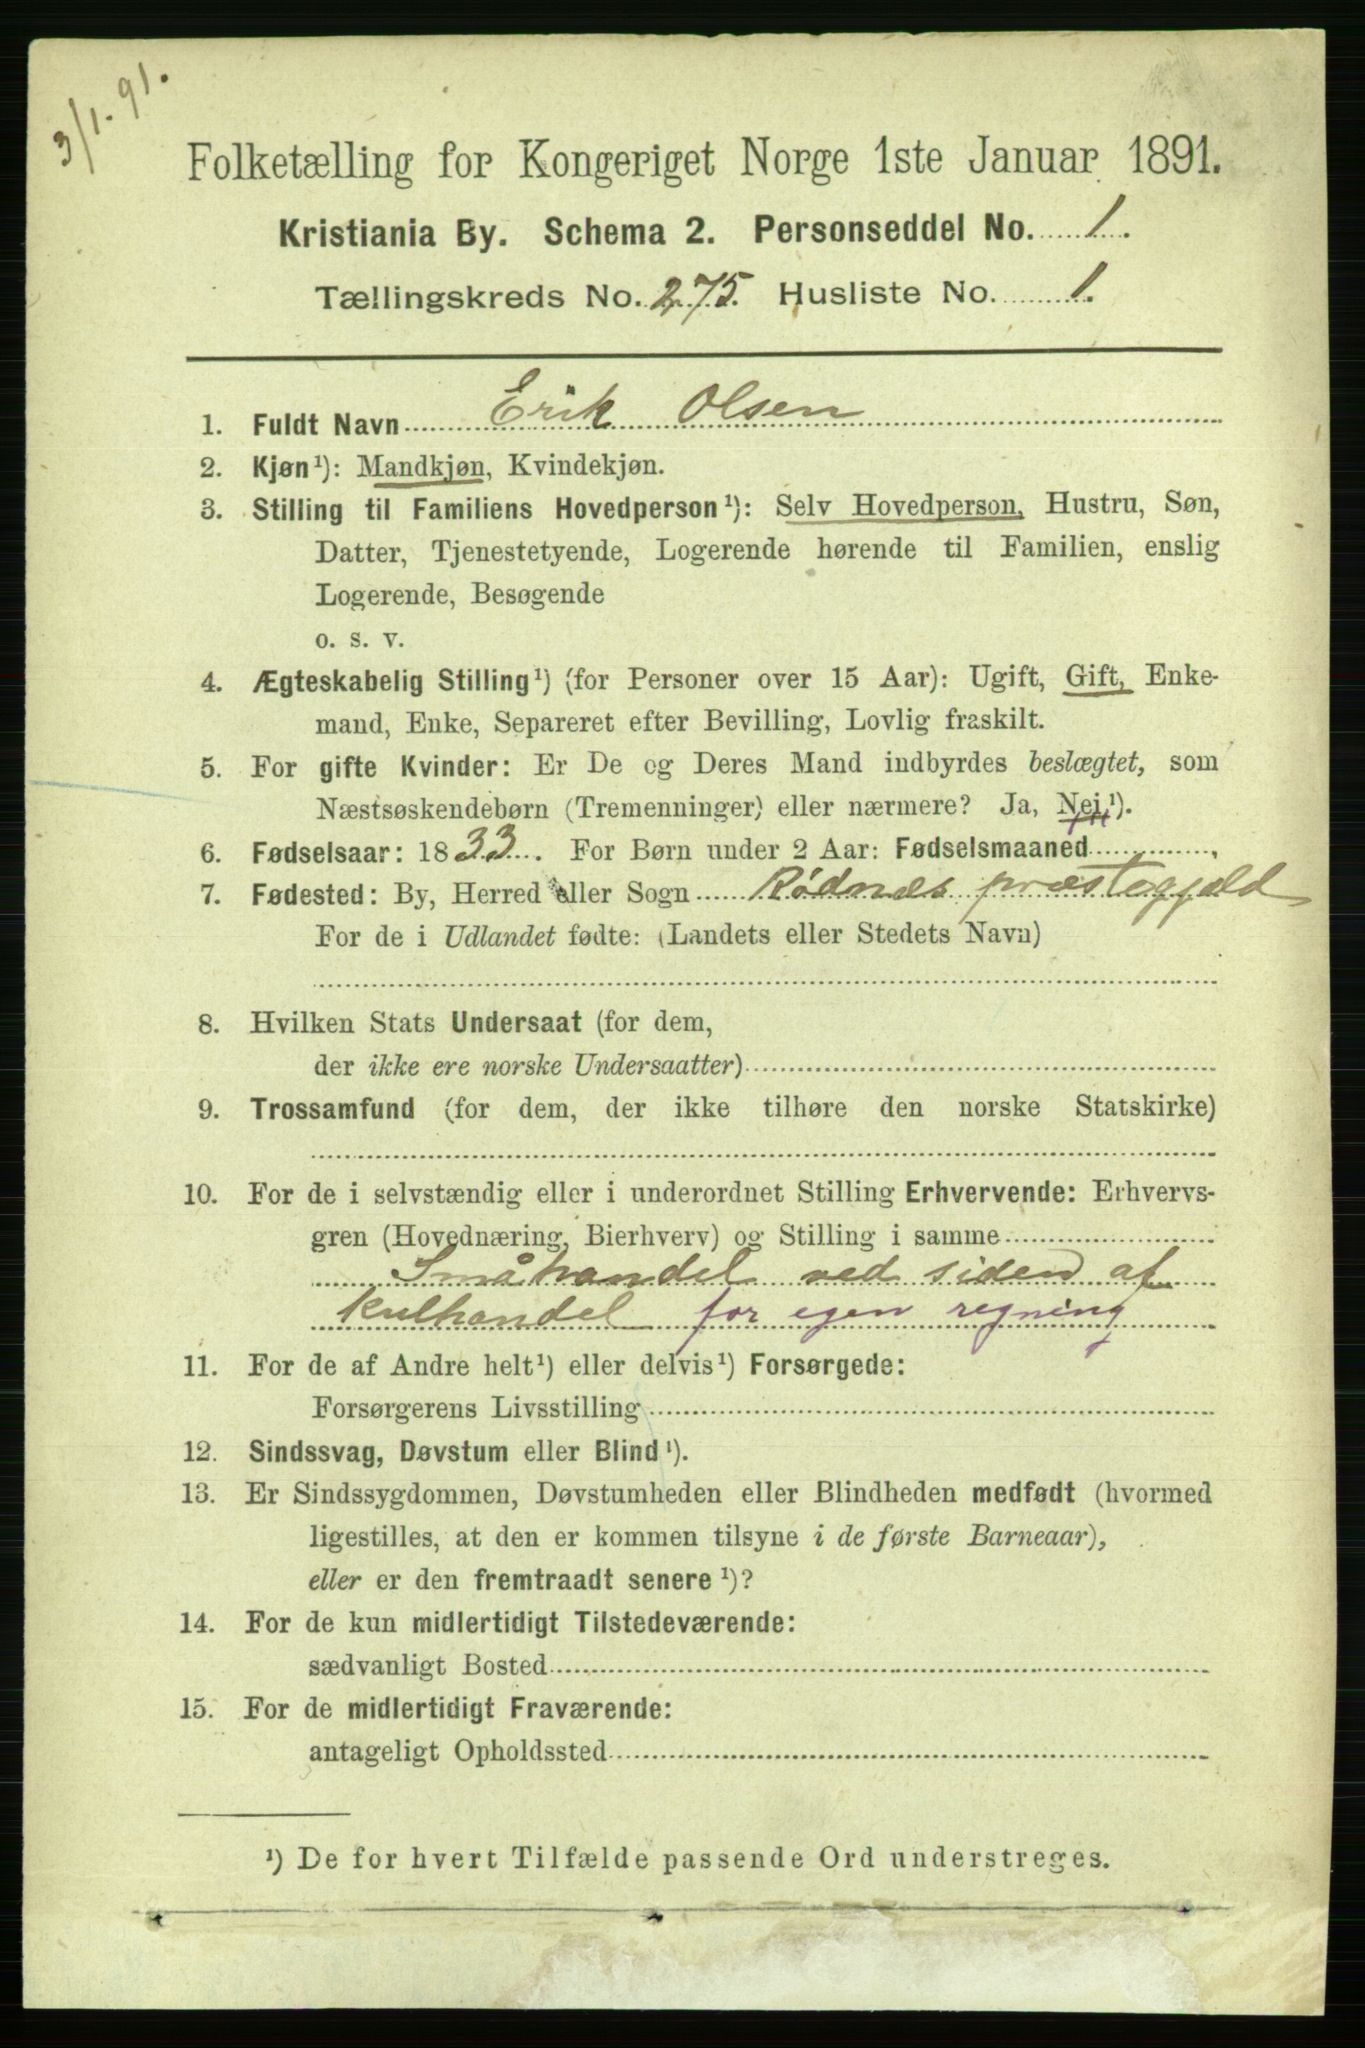 3/1. 91.
Folketælling for Kongeriget Norge 1ste Januar 1891.
Kristiania By. Schema 2. Personseddel No. 1.
Tællingskreds No. 275. Husliste No. 1.
1. Fuldt Navn Erik Olsen
2. Kjøn¹): Mandkjøn, Kvindekjøn.
3. Stilling til Familiens Hovedperson¹): Selv Hovedperson, Hustru, Søn,
Datter, Tjenestetyende, Logerende hørende til Familien, enslig
Logerende, Besøgende
o. s. v.
4. Ægteskabelig Stilling¹) (for Personer over 15 Aar): Ugift, Gift, Enke-
mand, Enke, Separeret efter Bevilling, Lovlig fraskilt.
5. For gifte Kvinder: Er De og Deres Mand indbyrdes beslægtet, som
Næstsøskendebørn (Tremenninger) eller nærmere? Ja, Nei¹).
6. Fødselsaar: 1833. For Børn under 2 Aar: Fødselsmaaned
7. Fødested: By, Herred eller Sogn Rødnæs præstegjæld
For de i Udlandet fødte: (Landets eller Stedets Navn)
8. Hvilken Stats Undersaat (for dem,
der ikke ere norske Undersaatter)
9. Trossamfund (for dem, der ikke tilhøre den norske Statskirke)
10. For de i selvstændig eller i underordnet Stilling Erhvervende: Erhvervs-
gren (Hovednæring, Bierhverv) og Stilling i samme
Småhandel ved siden af
Kulhandel for egen regning
11. For de af Andre helt¹) eller delvis¹) Forsørgede:
Forsørgerens Livsstilling
12. Sindssvag, Døvstum eller Blind¹).
13. Er Sindssygdommen, Døvstumheden eller Blindheden medfødt (hvormed
ligestilles, at den er kommen tilsyne i de første Barneaar),
eller er den fremtraadt senere¹)?
14. For de kun midlertidigt Tilstedeværende:
sædvanligt Bosted
15. For de midlertidigt Fraværende:
antageligt Opholdssted
¹) De for hvert Tilfælde passende Ord understreges.